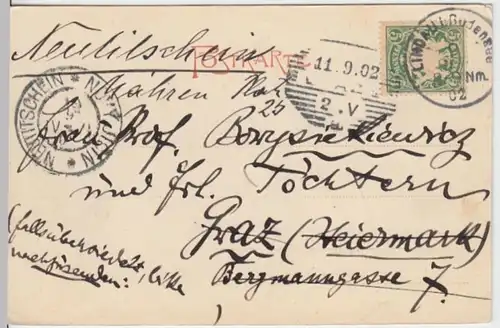 Neutitschein
POSTKARTE
11.9.02
Mähren
25
2 V
LINDAU i. Bodensee
Nm.
02
5
NEUTITSCHEIN * NOVÝ JIČÍN *
Frau Prof.
und Frl. Töchtern
Graz (Steiermark)
Bergmanngasse 7.
(falls übersiedelt, bitte
nachzusenden!